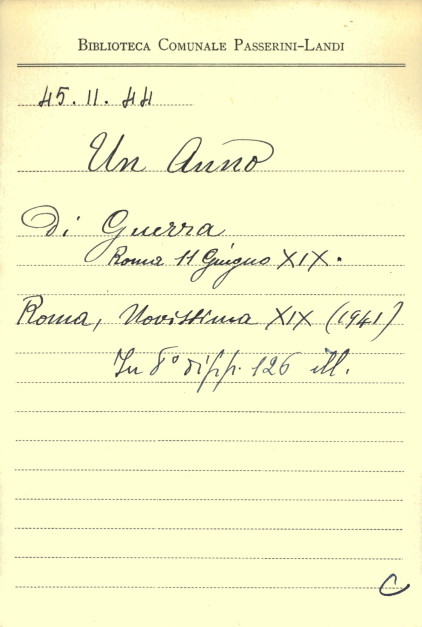 BIBLIOTECA COMUNALE PASSERINI-LANDI
45.11.44
Un Anno
Di Guerra
Roma 11 Giugno XIX.
Roma, Novissima XIX (1941)
In 8° di pp. 126 ill.
C